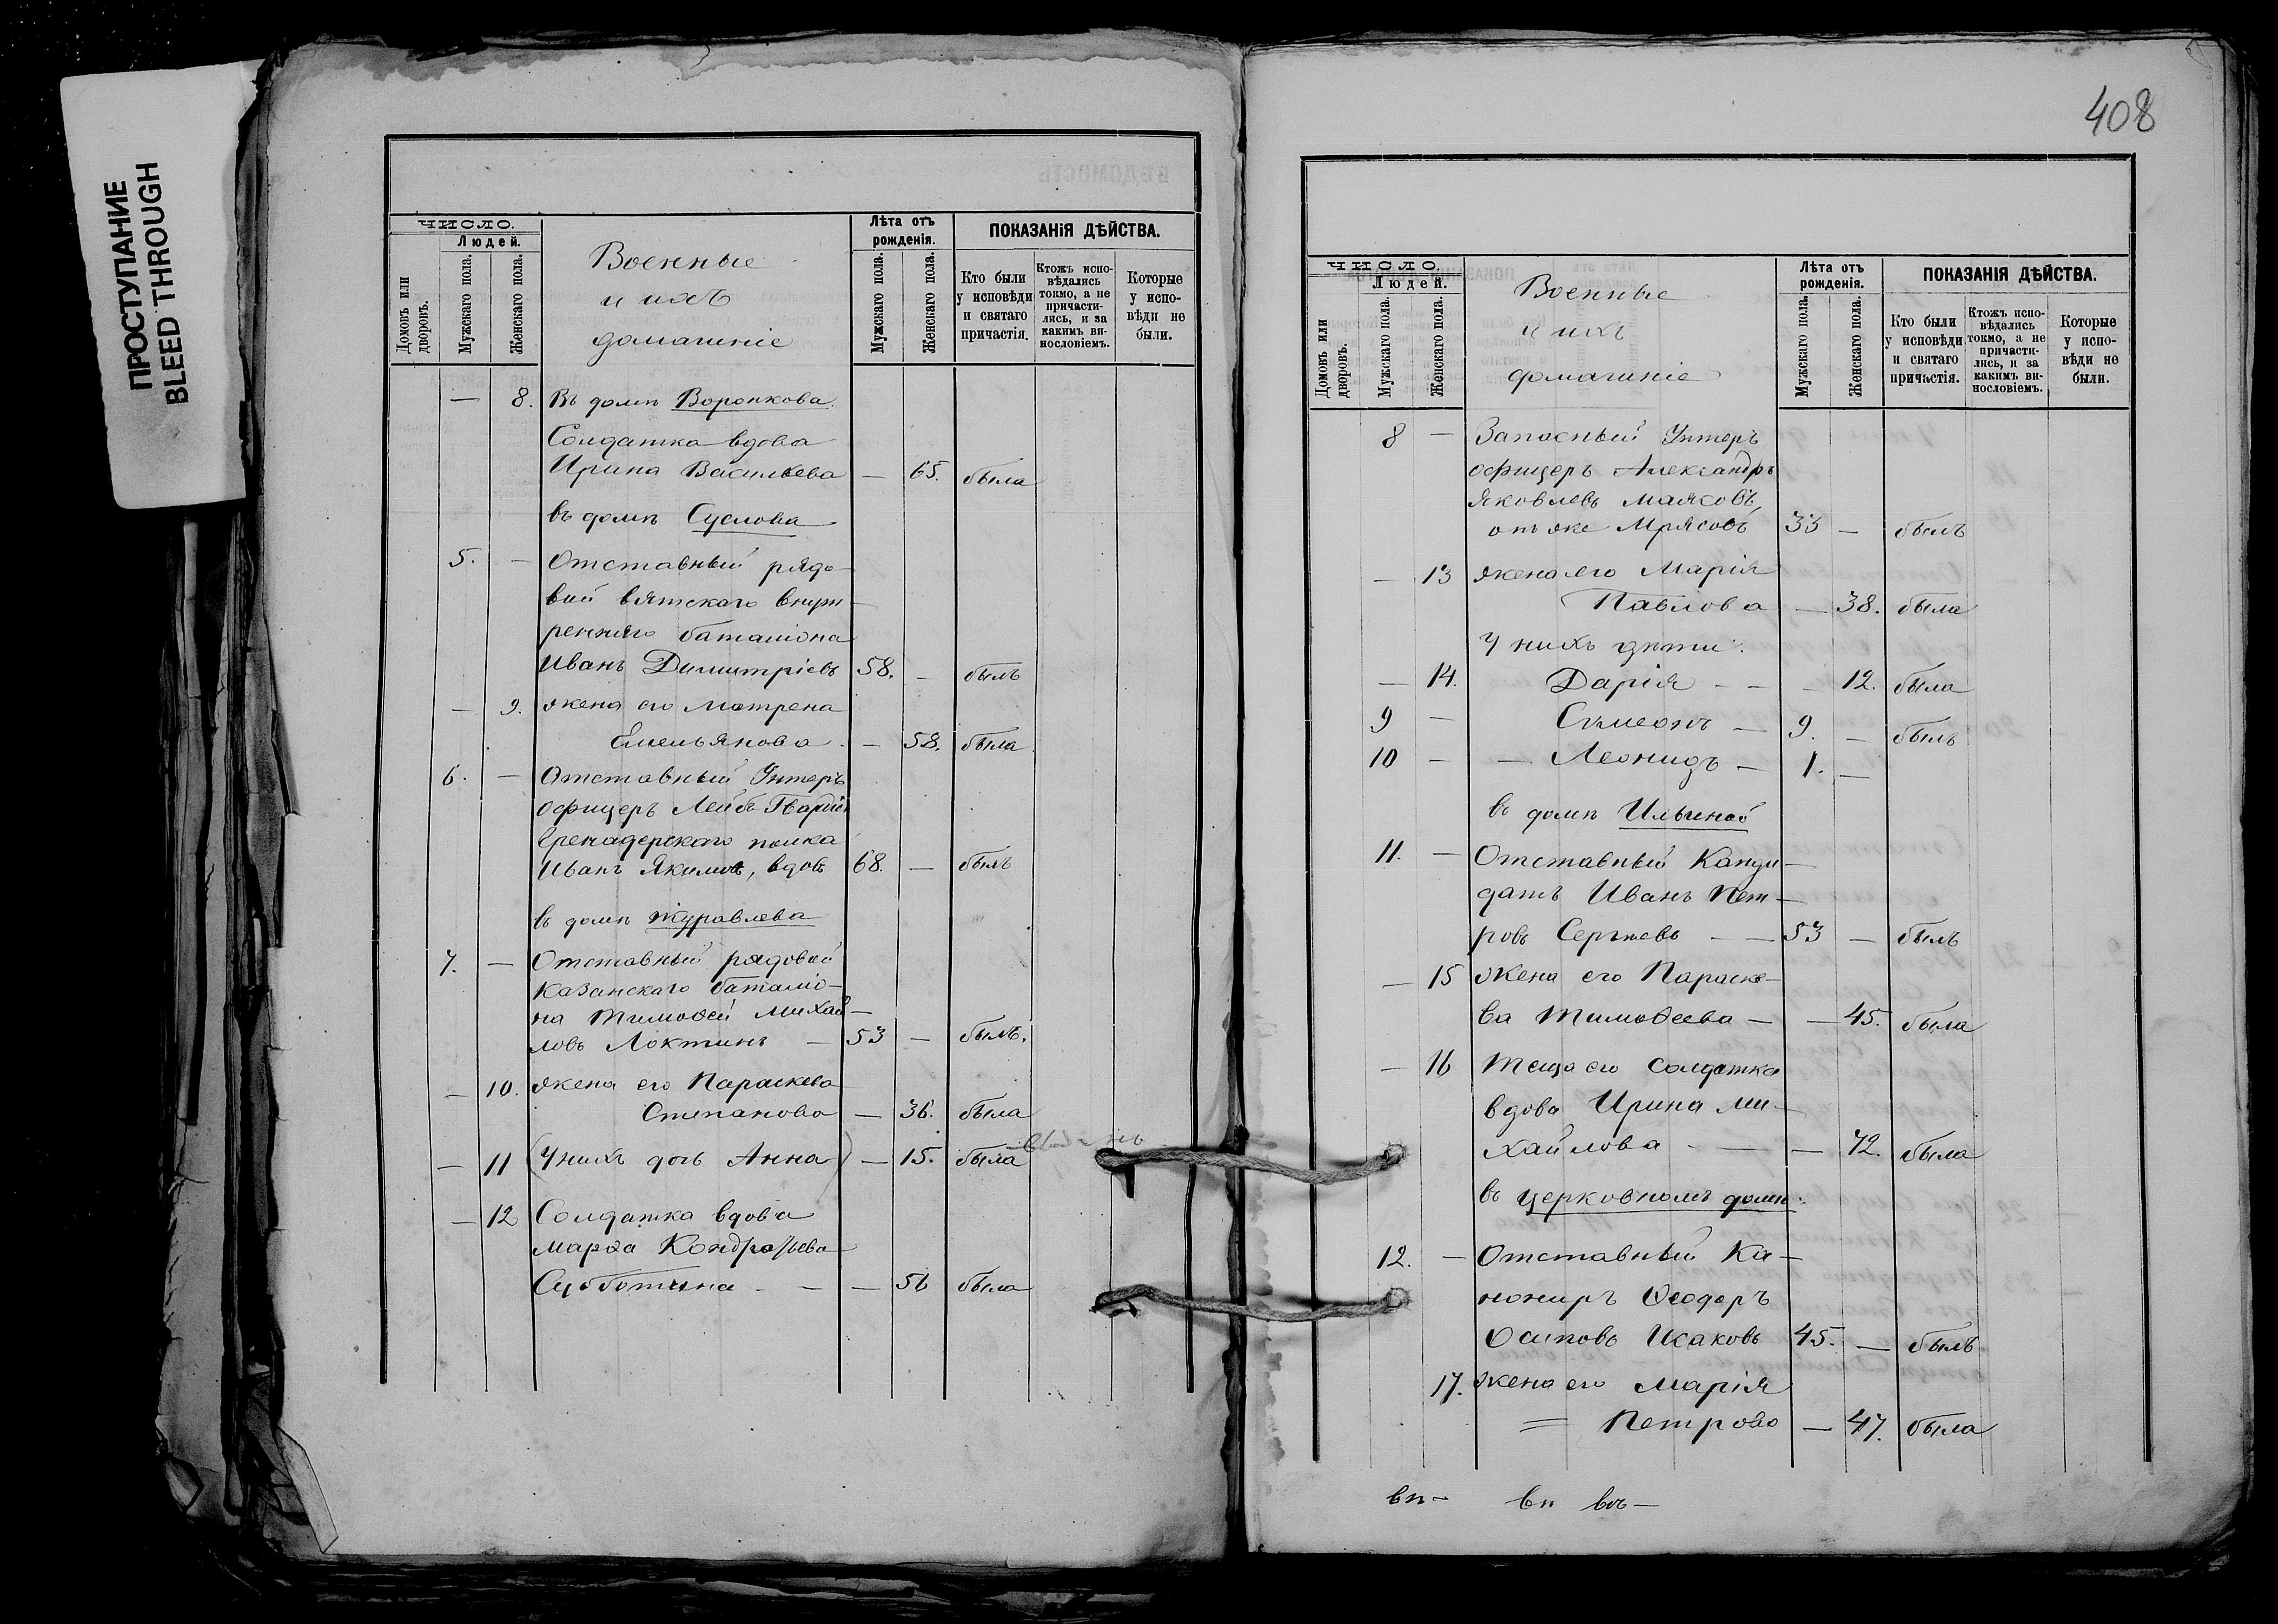 ПРОСТУПАНИЕ
BLEED THROUGH
ЧИСЛО.
Людей.
Домовъ или дворовъ.
Мужскаго пола.
Женскаго пола.
Военные
и ихъ
домашніе
Лѣта отъ рожденія.
Мужскаго пола.
Женскаго пола.
ПОКАЗАНІЯ ДѢЙСТВА.
Кто были у исповѣди и святаго причастія.
Ктожъ исповѣдались токмо, а не причастились, и за какимъ винословіемъ.
Которые у исповѣди не были.
— 8. Въ домѣ Воронкова
Солдатка вдова
Ирина Васильева — 65. была
въ домѣ Суслова
5. — Отставный рядо-
вой вятскаго внут-
ренняго баталіона
Иванъ Димитріевъ 58. — былъ
— 9. жена его Матрена
Емельянова — 58. была
6. — Отставный Унтеръ
офицеръ Лейбъ Гвардіи
Гренадерскаго полка
Иванъ Якимовъ, вдовъ 68. — былъ
въ домѣ Журавлева
7. — Отставный рядовой
Казанскаго баталіо-
на Тимоѳей Михай-
ловъ Локтинъ — 53 — былъ.
— 10. жена его Параскева
Степанова — 36. была
— 11 (У нихъ дочь Анна) — 15. была
— 12 Солдатка вдова
Марѳа Кондратьева
Субботина — — 56 была
408
ЧИСЛО.
Людей.
Домовъ или дворовъ.
Мужскаго пола.
Женскаго пола.
Военные
и ихъ
домашніе
Лѣта отъ рожденія.
Мужскаго пола.
Женскаго пола.
ПОКАЗАНІЯ ДѢЙСТВА.
Кто были у исповѣди и святаго причастія.
Ктожъ исповѣдались токмо, а не причастились, и за какимъ винословіемъ.
Которые у исповѣди не были.
8 — Запасный Унтеръ
офицеръ Александръ
Яковлевъ Маясовъ,
онъ же Мрясовъ 33 — былъ
— 13 жена его Марія
Павлова — 38. была
У нихъ дѣти:
— 14. Дарія — — — 12. была
9 — Сѵмеонъ — 9. — былъ
10 — — Леонидъ — 1. —
въ домѣ Ильиной
11. — Отставный Канди-
датъ Иванъ Пет-
ровъ Сергѣевъ — — 53 — былъ
— 15 Жена его Параске-
ва Тимоѳеева — — 45. была
— 16 Теща его солдатка
вдова Ирина Ми-
хайлова — — 72. была
въ церковномъ домѣ:
12. — Отставный Ка-
нониръ Ѳеодоръ
Осиповъ Исаковъ 45. — былъ
17. жена его Марія
= Петрова — 47. была